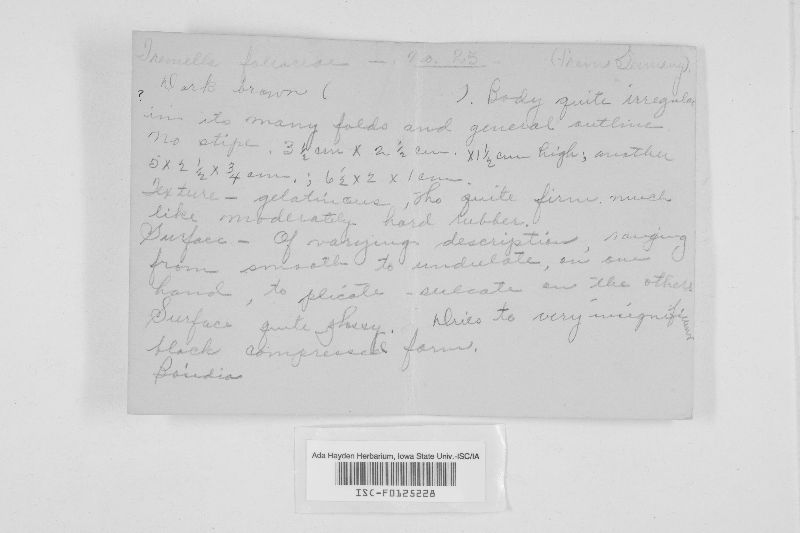 Tremella foliacea — . No. 25 - (
? Dark brown ( ). Body quite irregular
in its many folds and general outline
No stipe. 3 ½ cm x 2 ½ cm. x 1 ½ cm high; another
5 x 2 ½ x ¾ cm.; 6 ½ x 2 x 1 cm.
Texture – gelatinous, tho quite firm much
like moderately hard rubber.
Surface – Of varying description, ranging
from smooth to undulate, on one
hand, to plicate-sulcate on the other.
Surface quite glossy. Dries to very insignificant
black compressed form.
Ada Hayden Herbarium, Iowa State Univ.-ISC/IA
ISC-F0125228